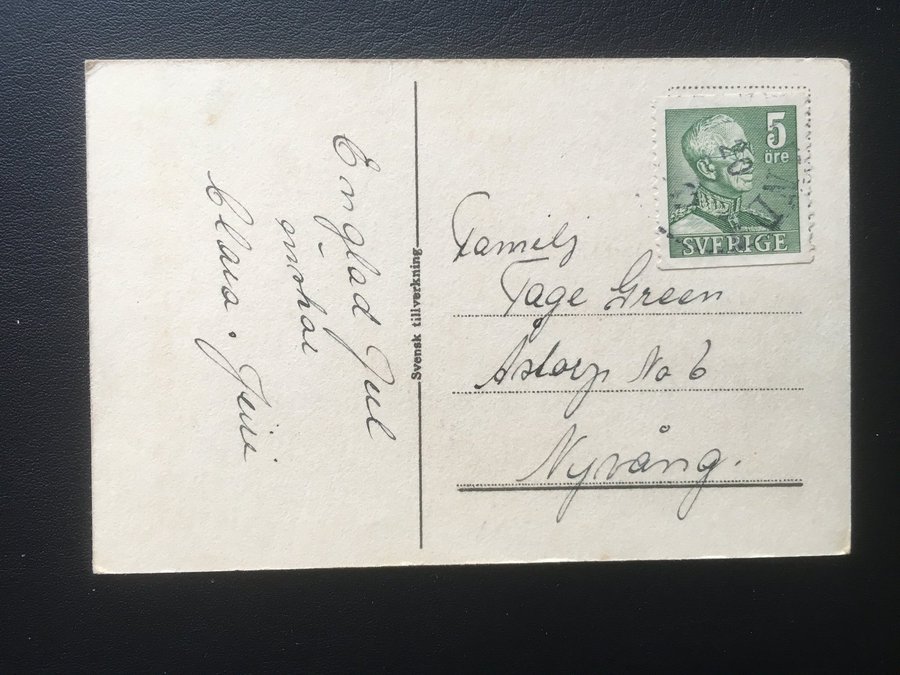 En glad Jul
önskar
Clara. Jüri
Svensk tillverkning
5
öre
SVERIGE
Familj
Tage Green
Åstorp No 6
Nyvång.